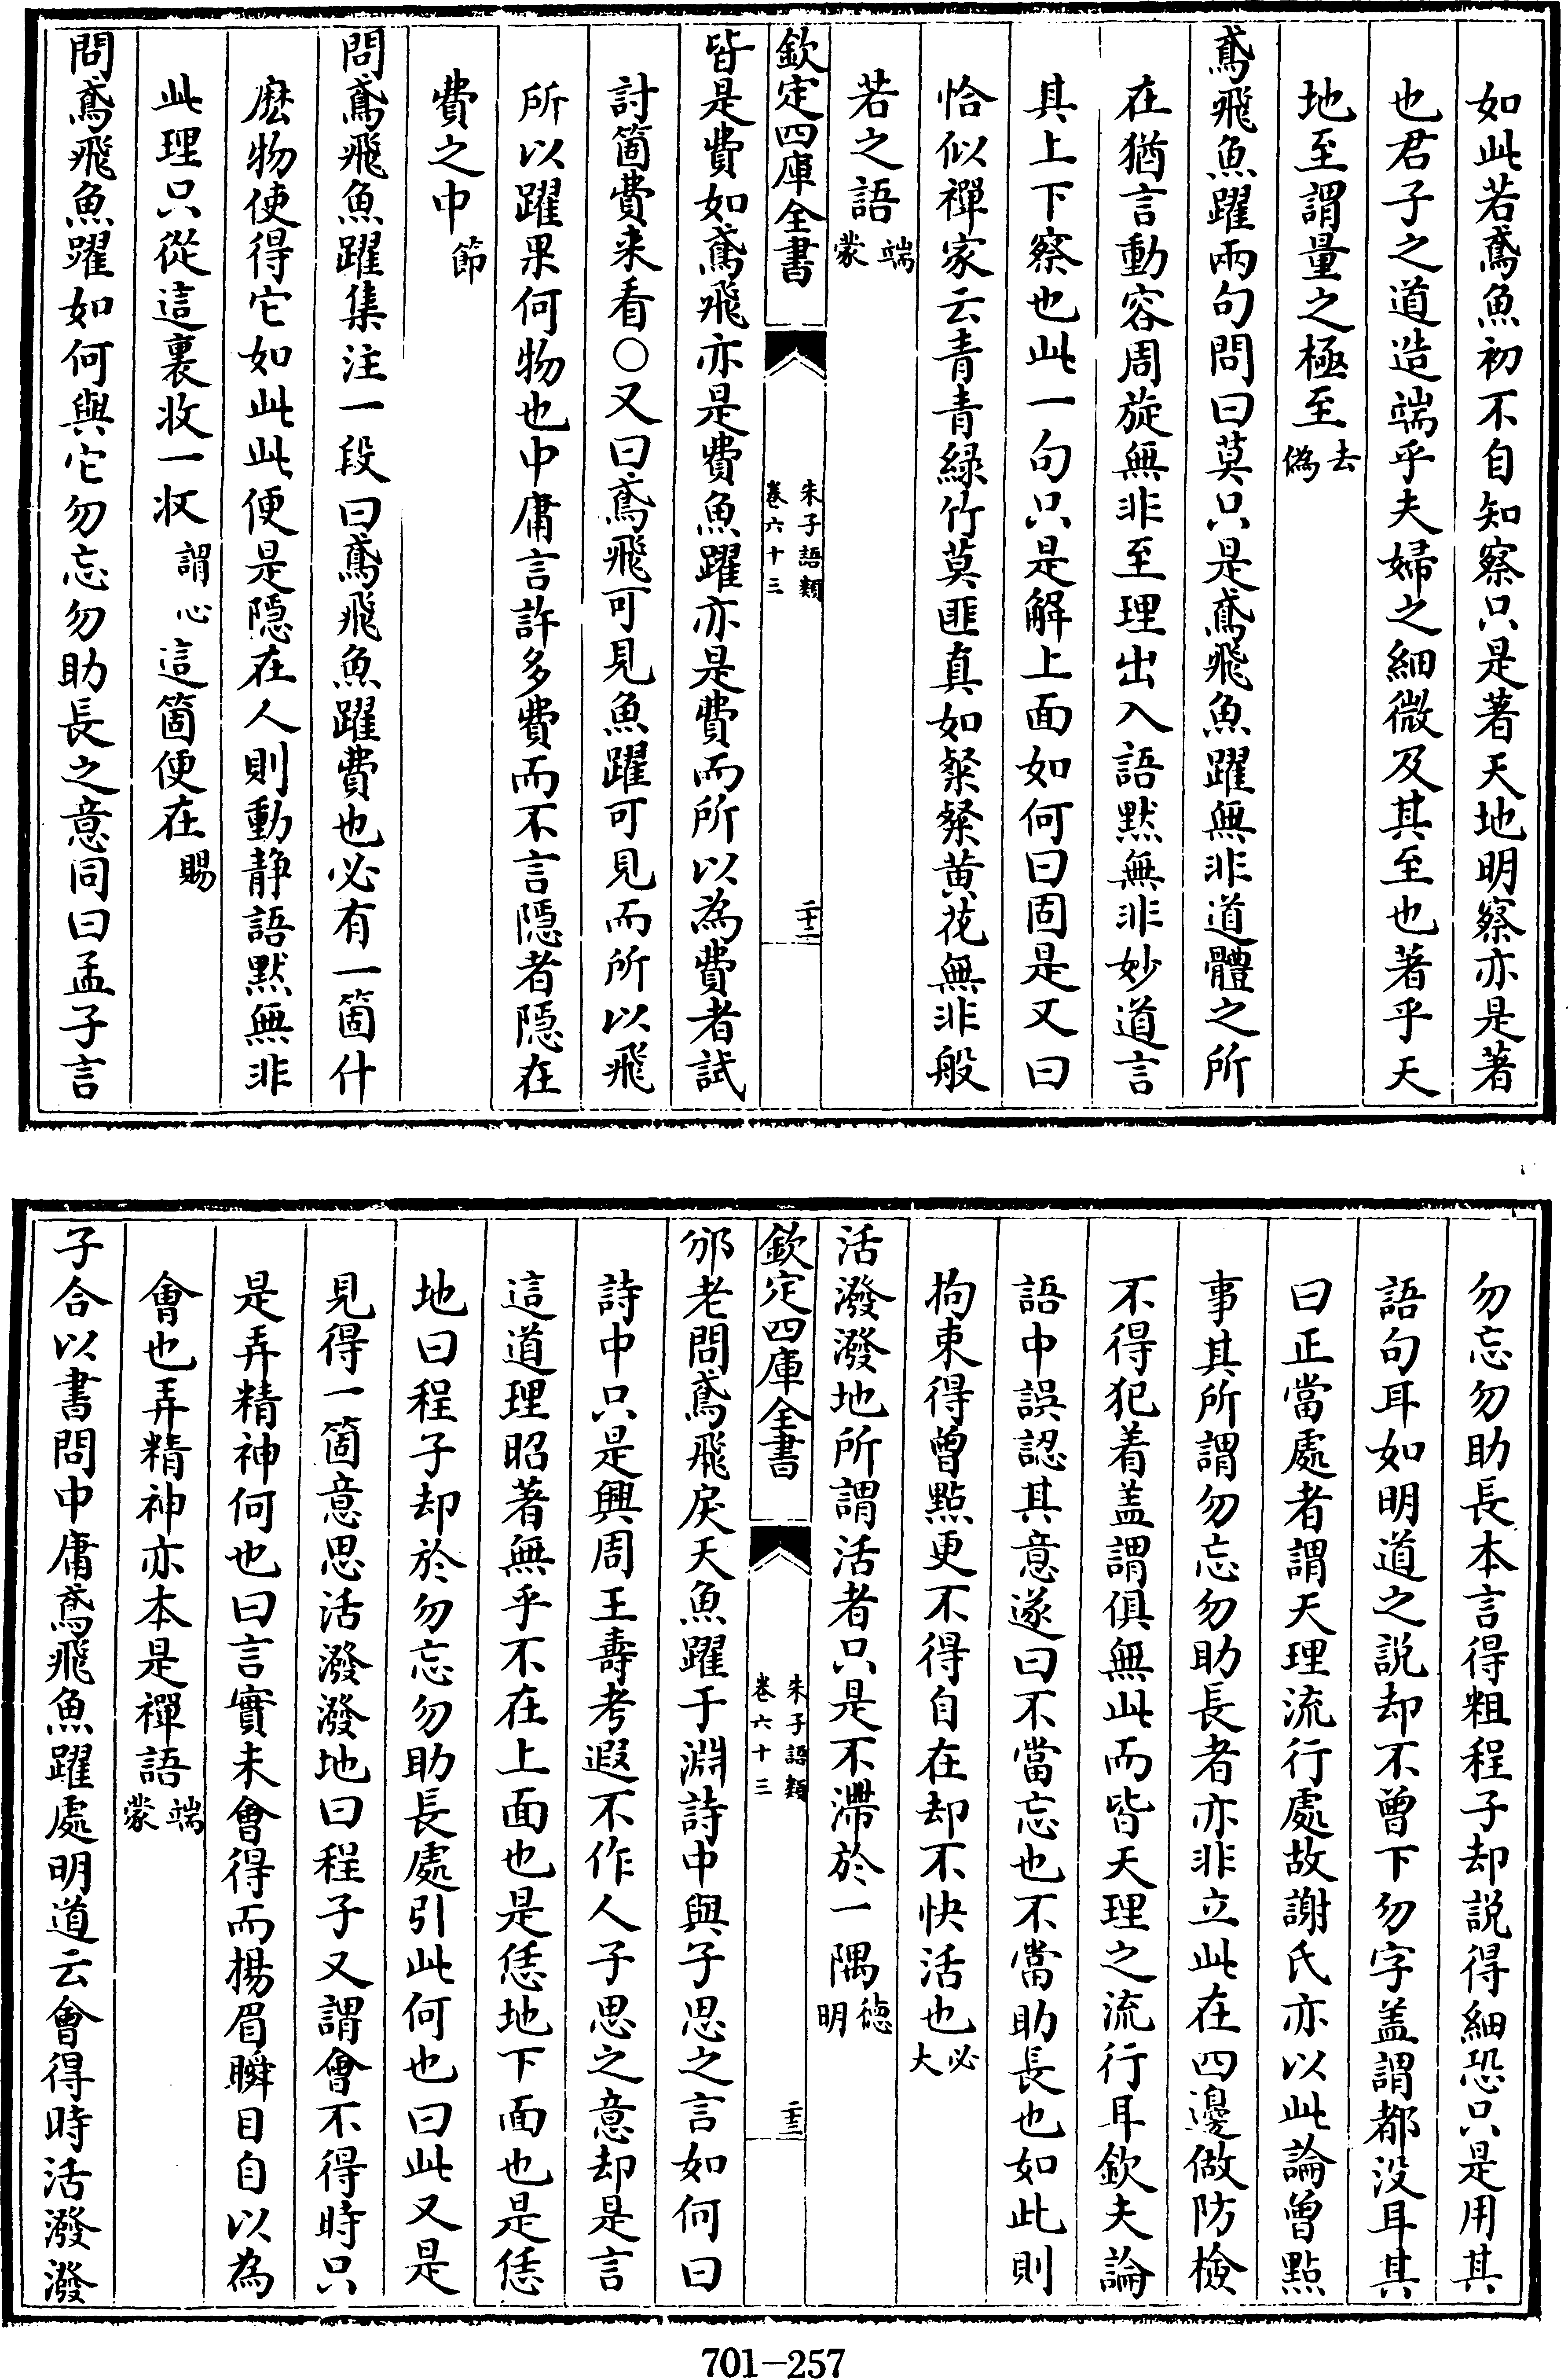 如此若鳶魚初不自知察只是著天地明察亦是著
也君子之道造端乎夫婦之細微及其至也著乎天
地至謂量之極至去偽
鳶飛魚躍兩句問曰莫只是鳶飛魚躍無非道體之所
在猶言動容周旋無非至理出入語默無非妙道言
其上下察也此一句只是解上面如何曰固是又曰
恰似禪家云青青綠竹莫匪真如粲粲黄花無非般
若之語端蒙
欽定四庫全書
朱子語類
卷六十三
二十二
皆是費如鳶飛亦是費魚躍亦是費而所以為費者試
討箇費来看○又曰鳶飛可見魚躍可見而所以飛
所以躍果何物也中庸言許多費而不言隠者隠在
費之中節
問鳶飛魚躍集注一段曰鳶飛魚躍費也必有一箇什
麽物使得它如此此便是隠在人則動静語默無非
此理只從這裏收一收謂心這箇便在賜
問鳶飛魚躍如何與它勿忘勿助長之意同曰孟子言
勿忘勿助長本言得粗程子却説得細恐只是用其
語句耳如明道之説却不曾下勿字盖謂都没耳其
曰正當處者謂天理流行處故謝氏亦以此論曾點
事其所謂勿忘勿助長者亦非立此在四邊做防檢
不得犯着盖謂俱無此而皆天理之流行耳欽夫論
語中誤認其意遂曰不當忘也不當助長也如此則
拘束得曾點更不得自在却不快活也必大
活潑潑地所謂活者只是不滯於一隅德明
欽定四庫全書
朱子語類
卷六十三
二十三
邠老問鳶飛戾天魚躍于淵詩中與子思之言如何曰
詩中只是興周王壽考遐不作人子思之意却是言
這道理昭著無乎不在上面也是恁地下面也是恁
地曰程子却於勿忘勿助長處引此何也曰此又是
見得一箇意思活潑潑地曰程子又謂會不得時只
是弄精神何也曰言實未會得而揚眉瞬目自以為
會也弄精神亦本是禪語端蒙
子合以書問中庸鳶飛魚躍處明道云會得時活潑潑
701-257